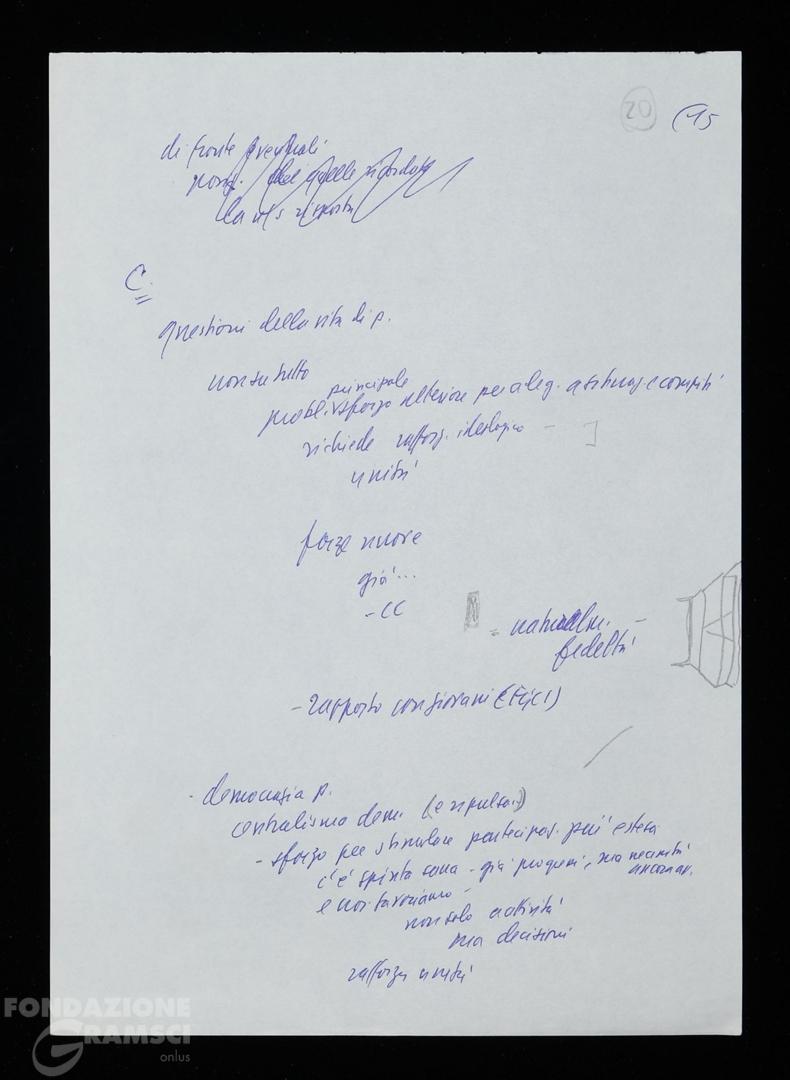 20
15
di fronte eventuali
poss. che quelle ricordate
la ns risposta
C.
questioni della vita di p.
non su tutto
principale
probl. sforzo ulteriore per adeg. a situaz. e compiti
richiede rafforz. ideologico -
unità
forze nuove
già...
- CC
= naturalm. -
fedeltà
- rapporto con giovani (FGCI)
- democrazia p.
centralismo dem. (e ripulsa..)
- sforzo per stimolare partecipaz. più estesa
c'è spinta sana - già progressi, ma necessità
ancora av.
e noi favoriamo -
non solo attività
ma decisioni
rafforza unità
FONDAZIONE
GRAMSCI
onlus